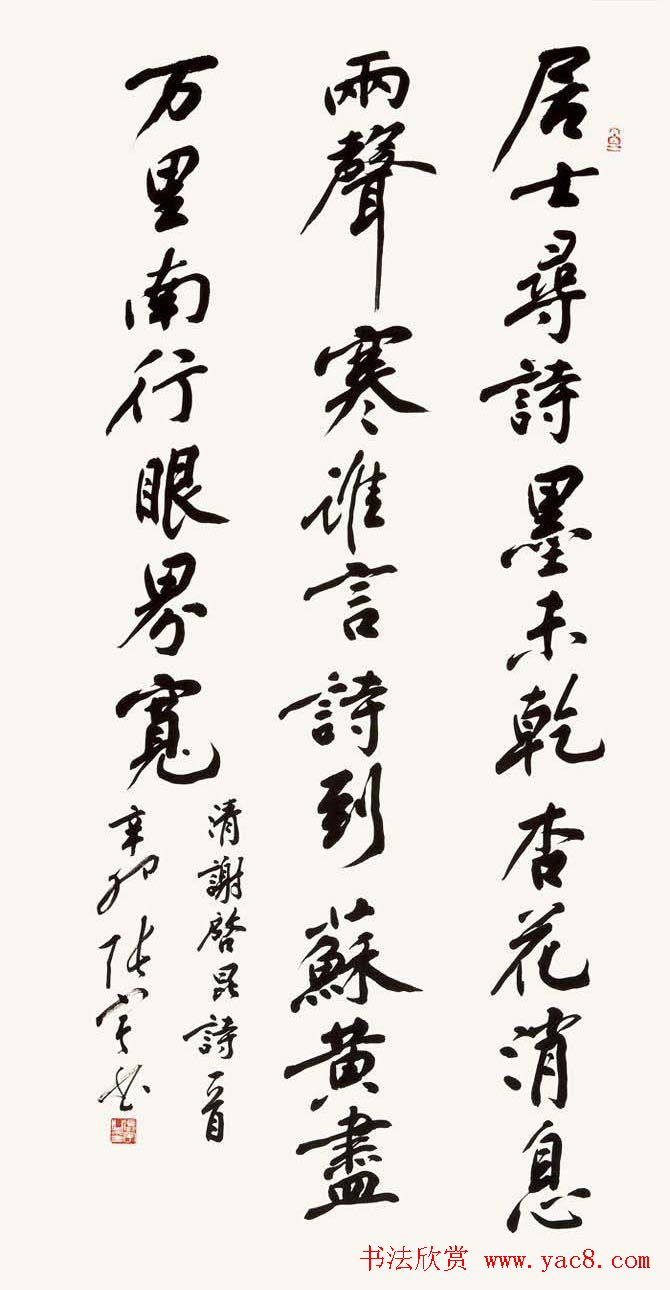 居士尋詩墨未乾杏花消息
雨聲寒谁言詩到蘇黄盡
万里南行眼界寬
清謝啓昆詩一首
辛卯张宇书
书法欣赏 www.yac8.com